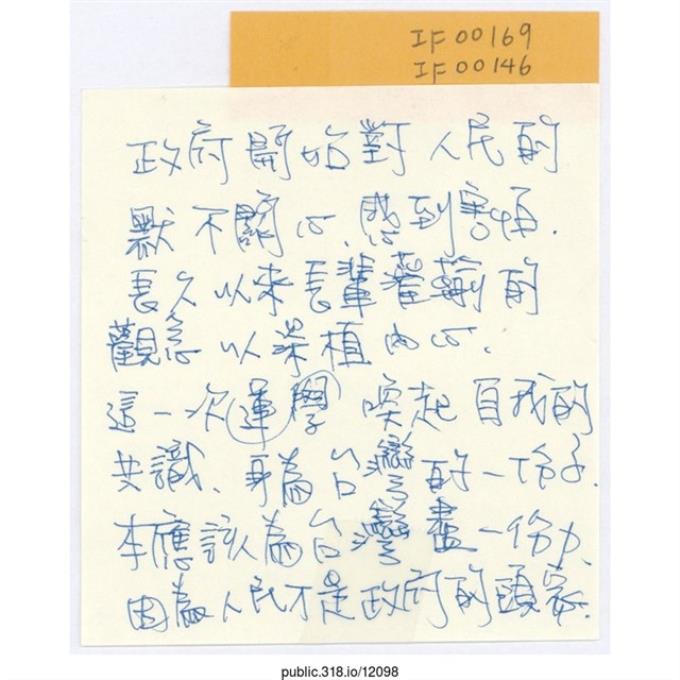 IF00169
IF00146
政府開始對人民的
默不關心、感到害怕.
長久以來長輩灌輸的
觀念以深植內心.
這一次運學喚起自我的
共識、身為台灣的一份子.
本應該為台灣盡一份力.
因為人民才是政府的頭家.
public.318.io/12098